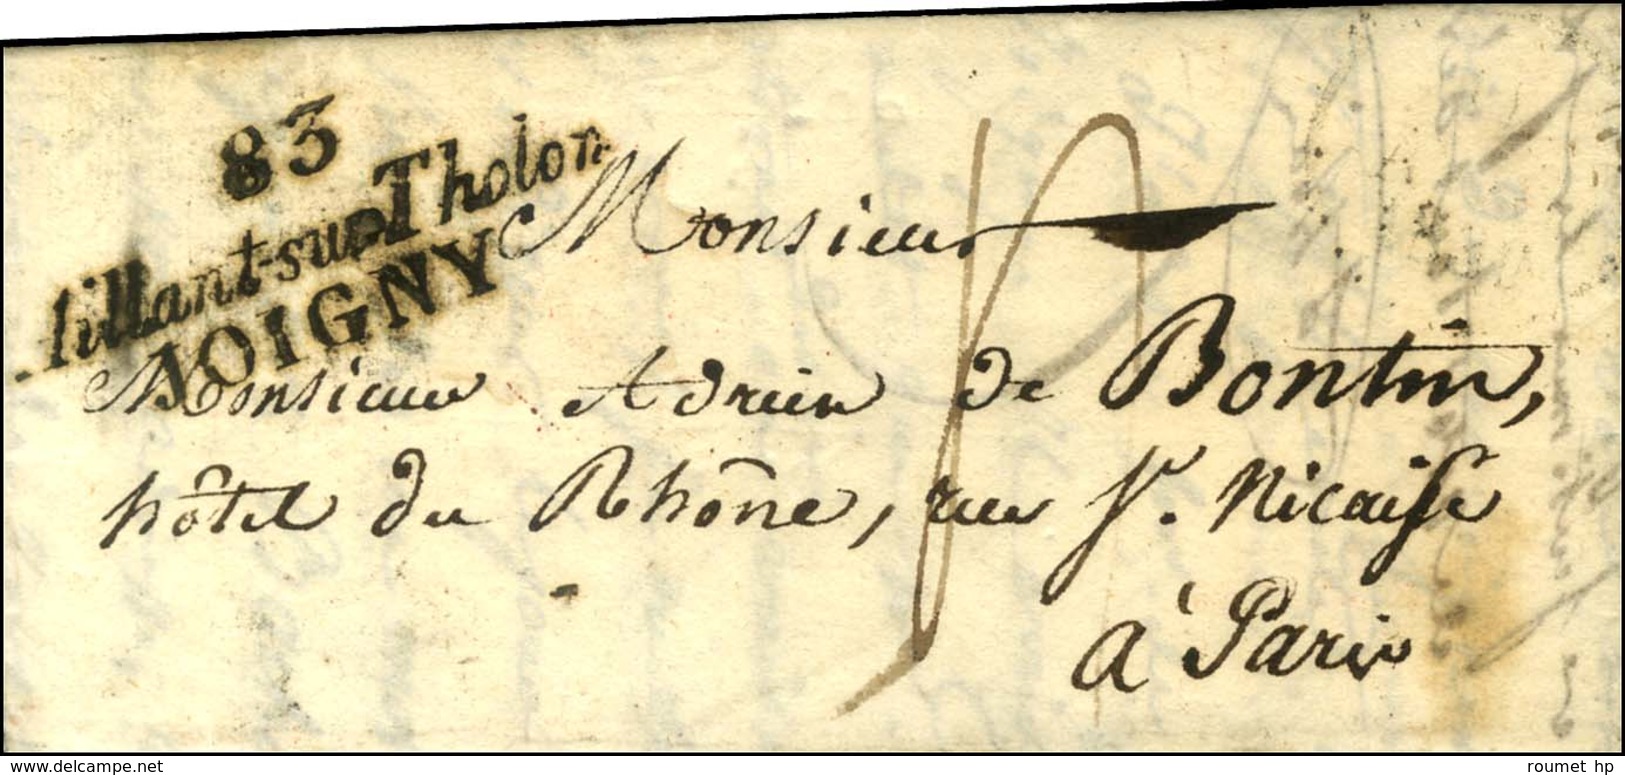 83
.lillant-sur-Tholon
JOIGNY
Monsieur
Monsieur Adrien de Bontin,
hôtel du Rhône, rue St. Nicaise
à Paris
www.delcampe.net
roumet hp